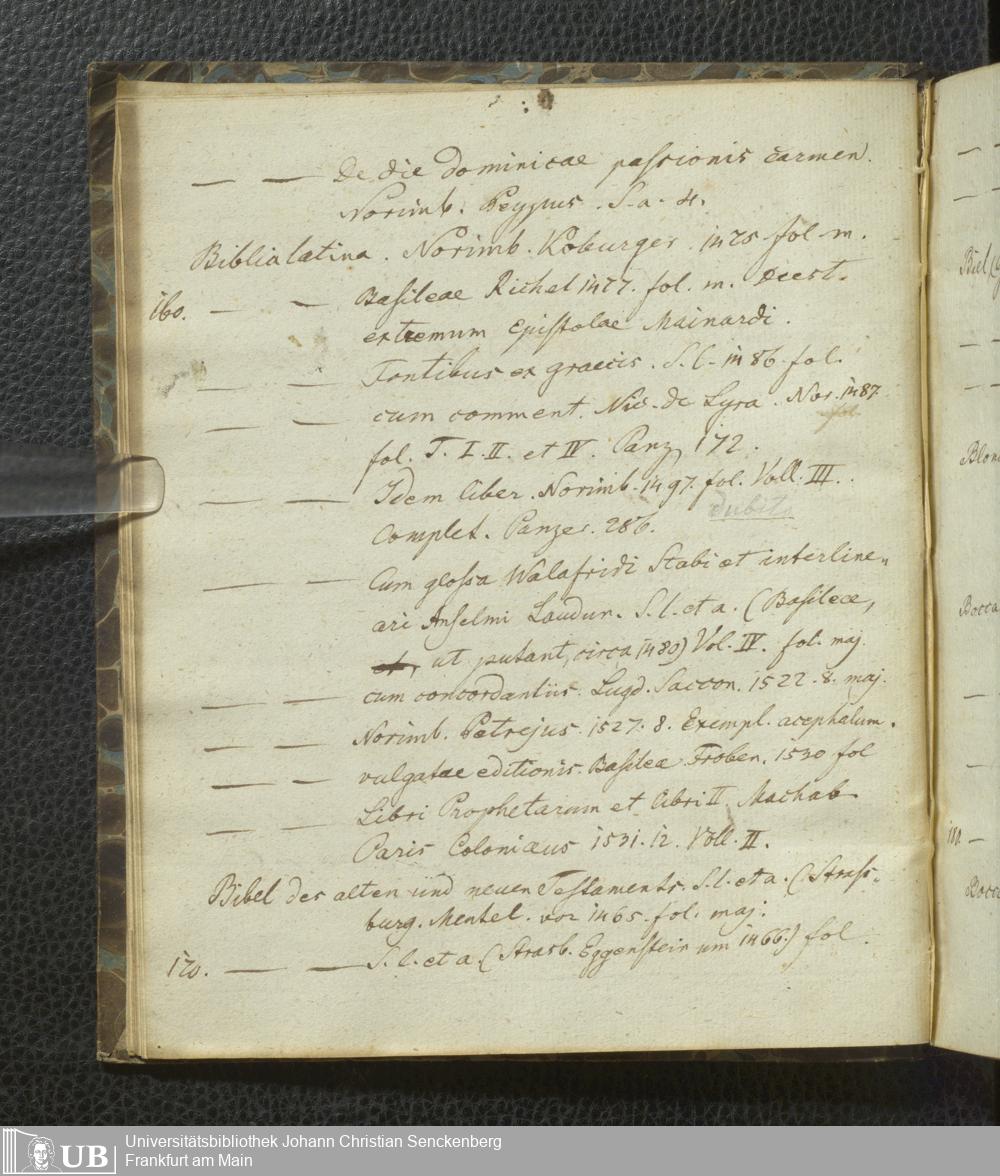 — — De die dominicae passionis carmen.
Norimb. Peypus. S. a. 4.
Biblia latina. Norimb. Koburger. 1475 fol. m.
160. — — Basileae Richel 1477. fol. m. Deest
extremum Epistolae Mainardi.
— — Fontibus ex graecis. S. l. 1486. fol.
— — cum comment. Nic. de Lyra. Nor. 1487.
fol. T. I. II. et IV. Panz. 172.
— — Idem liber. Norimb. 1497. fol. Voll. III.
dubito
Complet. Panzer. 286.
— — Cum glossa Walafridi Stabi et interline„
ari Anselmi Laudun. S. l. et a. (Basileae,
et, ut putant, circa 1480) Vol. IV. fol. maj.
— — cum concordantiis. Lugd. Saccon. 1522. 8. maj.
— — Norimb. Petrejus. 1527. 8. Exempl. acephalum.
— — vulgatae editionis. Basileae Froben. 1530 fol
— — Libri Prophetarum et libri II. Machab.
Paris Colonaeus 1531. 12. Voll. II.
Bibel des alten und neuen Testaments. S. l. et a. (Strass-
burg. Mentel. vor 1465. fol. maj.
170. — — S. l. et a. (Strasb. Eggenstein um 1466.) fol.
Biel
Blon
Bocca
180. —
Bocca
UB
Universitätsbibliothek Johann Christian Senckenberg
Frankfurt am Main